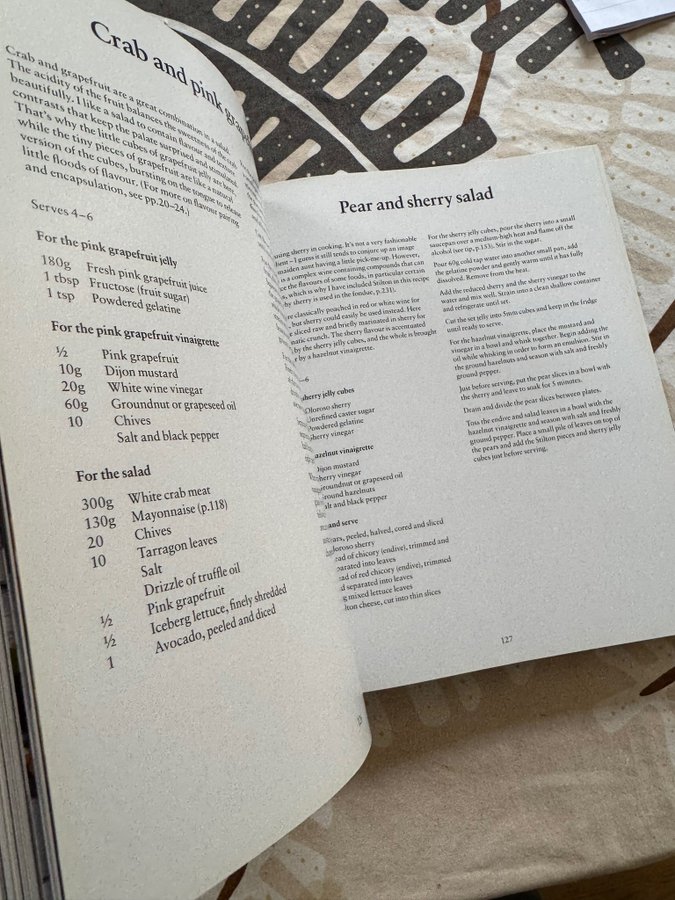 Crab and pink
Crab and grapefruit are a great combination in a salad.
The acidity of the fruit balances the sweetness of the crab
beautifully. I like a salad to contain flavour and texture
contrasts that keep the palate surprised and stimulated.
That's why the little cubes of grapefruit jelly are here,
while the tiny pieces of grapefruit are like a natural
version of the cubes, bursting on the tongue to release
little floods of flavour. (For more on flavour pairing
and encapsulation, see pp.20–24.)
Serves 4–6
For the pink grapefruit jelly
180g Fresh pink grapefruit juice
1 tbsp Fructose (fruit sugar)
1 tsp Powdered gelatine
For the pink grapefruit vinaigrette
½ Pink grapefruit
10g Dijon mustard
20g White wine vinegar
60g Groundnut or grapeseed oil
10 Chives
Salt and black pepper
For the salad
300g White crab meat
130g Mayonnaise (p.118)
20 Chives
10 Tarragon leaves
Salt
Drizzle of truffle oil
½ Pink grapefruit
½ Iceberg lettuce, finely shredded
1 Avocado, peeled and diced
Pear and sherry salad
using sherry in cooking. It's not a very fashionable
– I guess it still tends to conjure up an image
maiden aunt having a little pick-me-up. However,
is a complex wine containing compounds that can
the flavours of some foods, in particular certain
which is why I have included Stilton in this recipe
sherry is used in the fondue, p.231).
are classically poached in red or white wine for
but sherry could easily be used instead. Here
sliced raw and briefly marinated in sherry for
crunch. The sherry flavour is accentuated
by the sherry jelly cubes, and the whole is brought
by a hazelnut vinaigrette.
–6
sherry jelly cubes
Oloroso sherry
Unrefined caster sugar
Powdered gelatine
Sherry vinegar
hazelnut vinaigrette
Dijon mustard
Sherry vinegar
Groundnut or grapeseed oil
Ground hazelnuts
Salt and black pepper
and serve
peeled, halved, cored and sliced
Oloroso sherry
of chicory (endive), trimmed and
separated into leaves
of red chicory (endive), trimmed
and separated into leaves
mixed lettuce leaves
cheese, cut into thin slices
For the sherry jelly cubes, pour the sherry into a small
saucepan over a medium-high heat and flame off the
alcohol (see tip, p.153). Stir in the sugar.
Pour 60g cold tap water into another small pan, add
the gelatine powder and gently warm until it has fully
dissolved. Remove from the heat.
Add the reduced sherry and the sherry vinegar to the
water and mix well. Strain into a clean shallow container
and refrigerate until set.
Cut the set jelly into 5mm cubes and keep in the fridge
until ready to serve.
For the hazelnut vinaigrette, place the mustard and
vinegar in a bowl and whisk together. Begin adding the
oil while whisking in order to form an emulsion. Stir in
the ground hazelnuts and season with salt and freshly
ground pepper.
Just before serving, put the pear slices in a bowl with
the sherry and leave to soak for 5 minutes.
Drain and divide the pear slices between plates.
Toss the endive and salad leaves in a bowl with the
hazelnut vinaigrette and season with salt and freshly
ground pepper. Place a small pile of leaves on top of
the pears and add the Stilton pieces and sherry jelly
cubes just before serving.
127